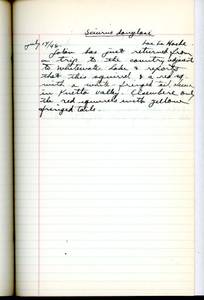 Sciurus douglasi
July 17/42 Lac La Hache
has just returned from
a trip to the country adjacent
to Whitewater Lake & reports
that this squirrel & a red sq.
with a white fringed tail occur
in Valley. Elsewhere only
the red squirrels with yellow
fringed tails.